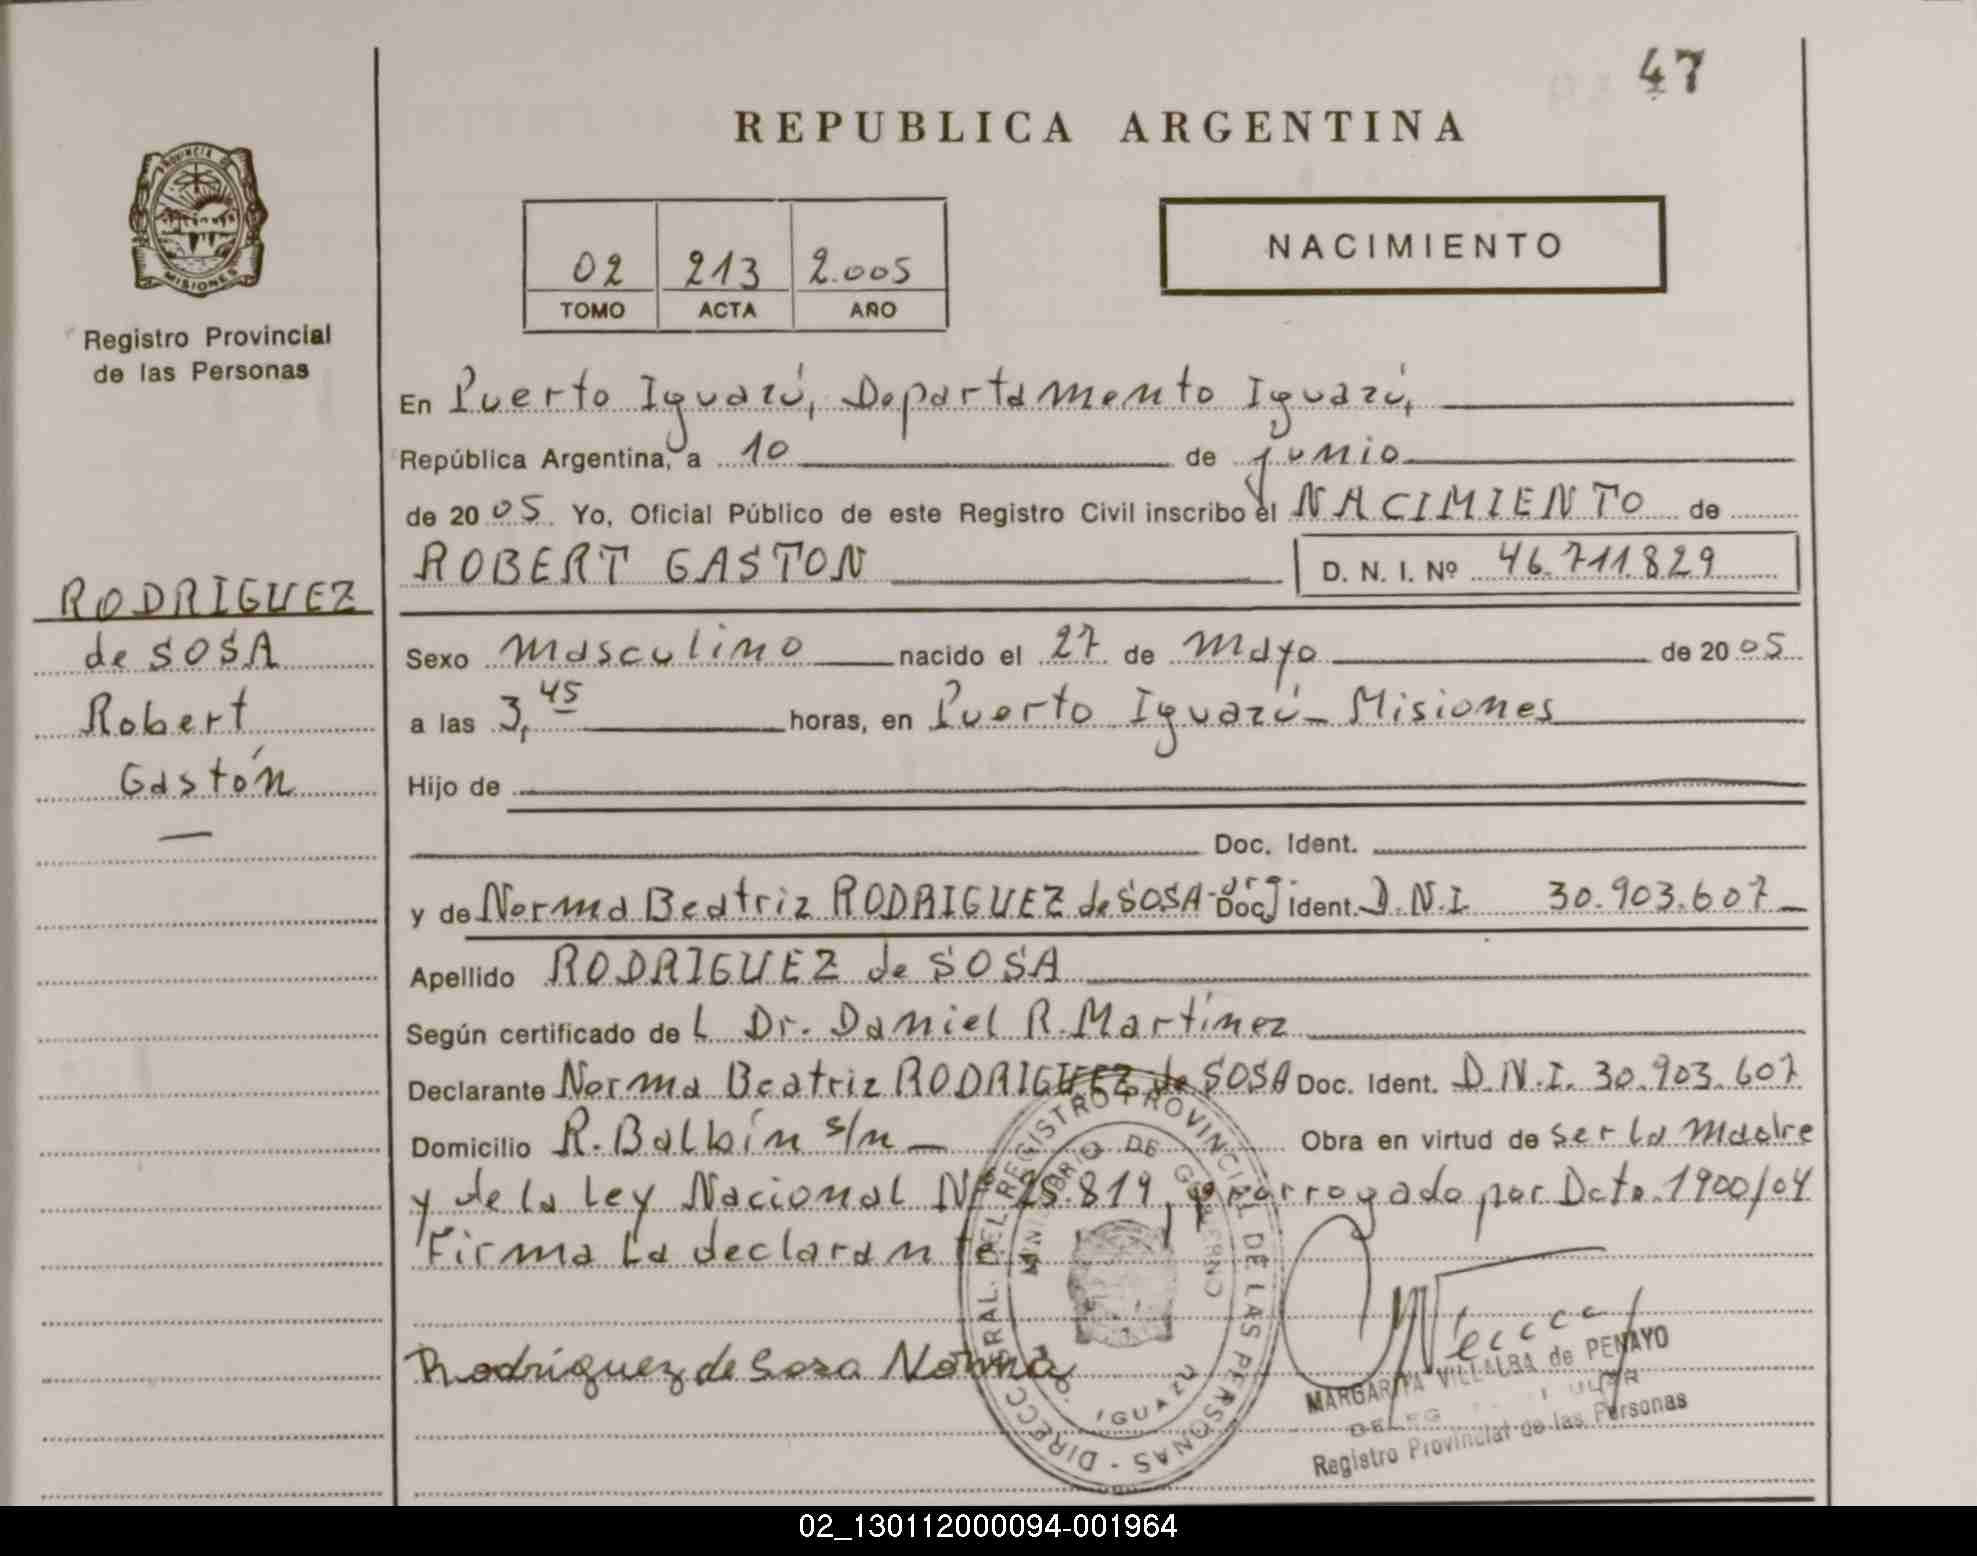 47
REPUBLICA ARGENTINA
PROVINCIA DE
MISIONES
Registro Provincial
de las Personas
02 213 2.005
TOMO ACTA AÑO
NACIMIENTO
En Puerto Iguazú, Departamento Iguazú,
República Argentina, a 10 de junio
de 2005. Yo, Oficial Público de este Registro Civil inscribo el NACIMIENTO de
ROBERT GASTON D. N. I. Nº 46.711.829
RODRIGUEZ
de SOSA
Robert
Gastón
Sexo masculino nacido el 27 de mayo de 2005
a las 3,45 horas, en Puerto Iguazú - Misiones
Hijo de
Doc. Ident.
y de Norma Beatriz RODRIGUEZ de SOSA - arg. Doc. Ident. D.N.I 30.903.607
Apellido RODRIGUEZ de SOSA
Según certificado del Dr. Daniel R. Martínez
Declarante Norma Beatriz RODRIGUEZ de SOSA Doc. Ident. D.N.I. 30.903.607
Domicilio R. Balbín s/n Obra en virtud de ser la madre
y de la Ley Nacional Nº 25.819, prorrogado por Dcto. 1900/04
Firma la declarante
Rodríguez de Sosa Norma
DIRECC GRAL. DEL REGISTRO PROVINCIAL DE LAS PERSONAS -
MINISTERIO DE GOBIERNO
IGUAZU
MARGARITA VILLALBA de PENAYO
Registro Provincial de las Personas
02_130112000094-001964